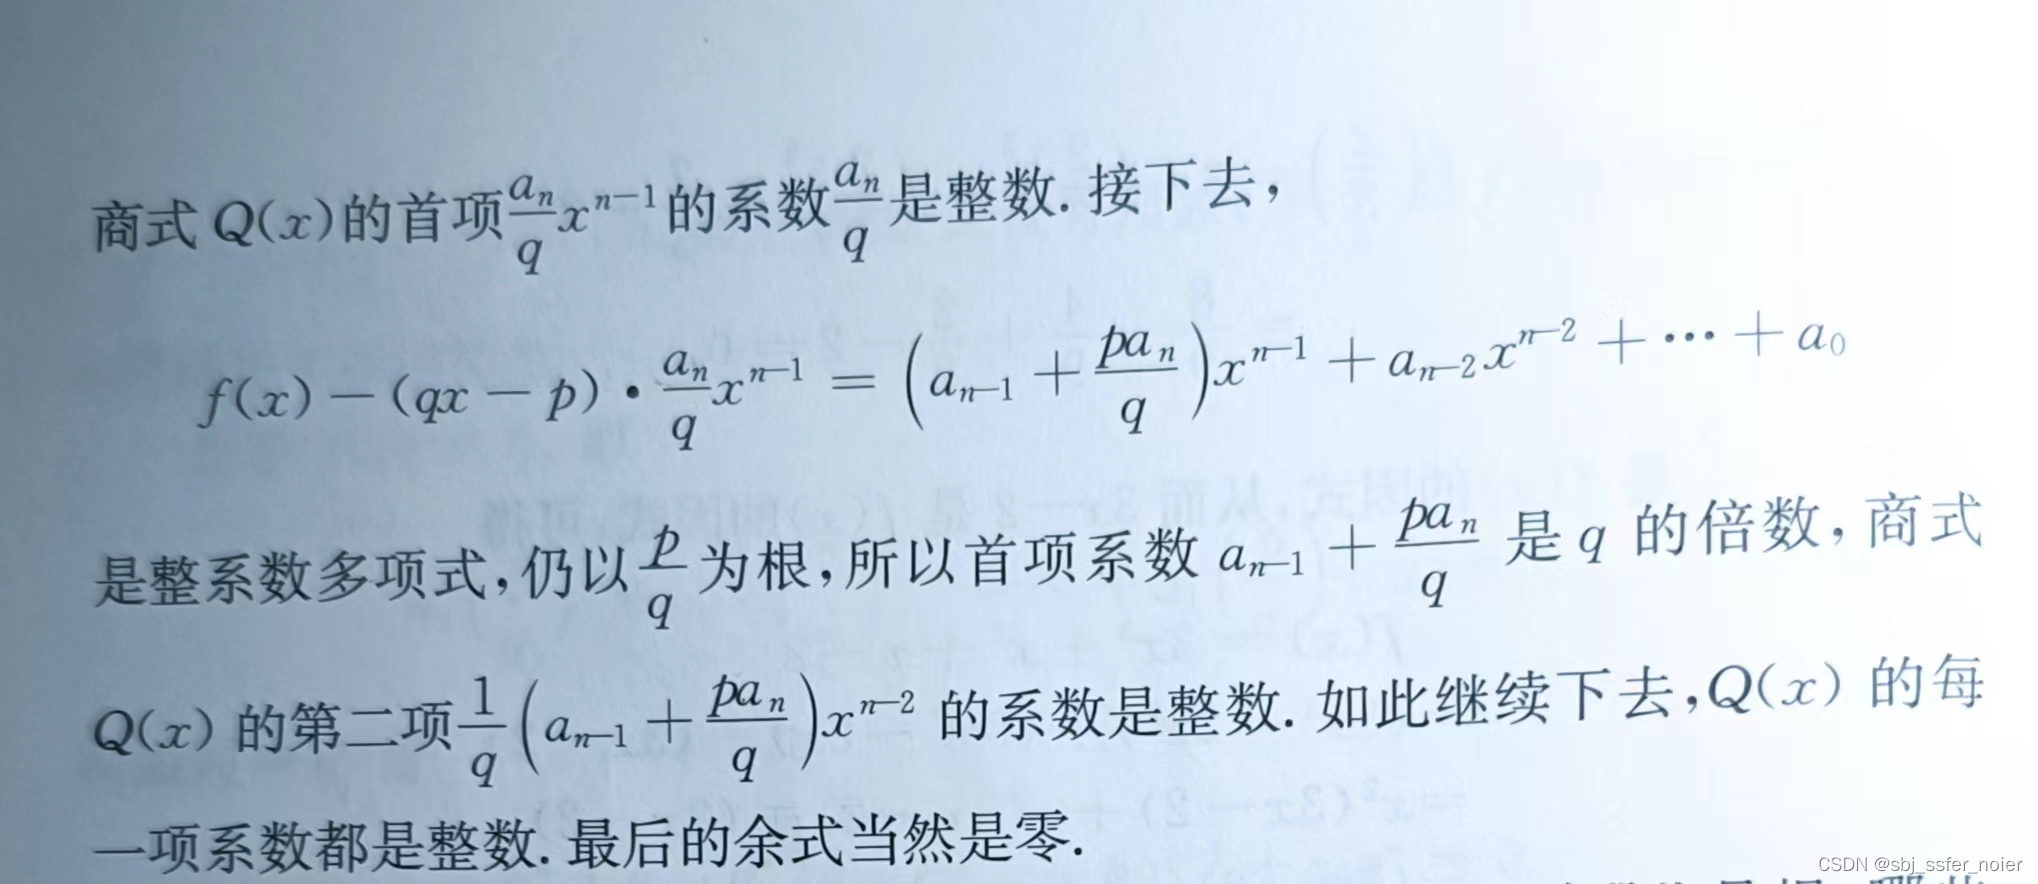 商式 Q(x)的首项\frac{a_n}{q}x^{n-1}的系数\frac{a_n}{q}是整数. 接下去，
f(x)－(qx－p)·\frac{a_n}{q}x^{n-1}＝\left(a_{n-1}＋\frac{pa_n}{q}\right)x^{n-1}＋a_{n-2}x^{n-2}＋…＋a_0
是整系数多项式，仍以\frac{p}{q}为根，所以首项系数 a_{n-1}＋\frac{pa_n}{q} 是 q 的倍数，商式
Q(x) 的第二项\frac{1}{q}\left(a_{n-1}＋\frac{pa_n}{q}\right)x^{n-2} 的系数是整数. 如此继续下去，Q(x) 的每
一项系数都是整数. 最后的余式当然是零.
CSDN @sbj_ssfer_noier